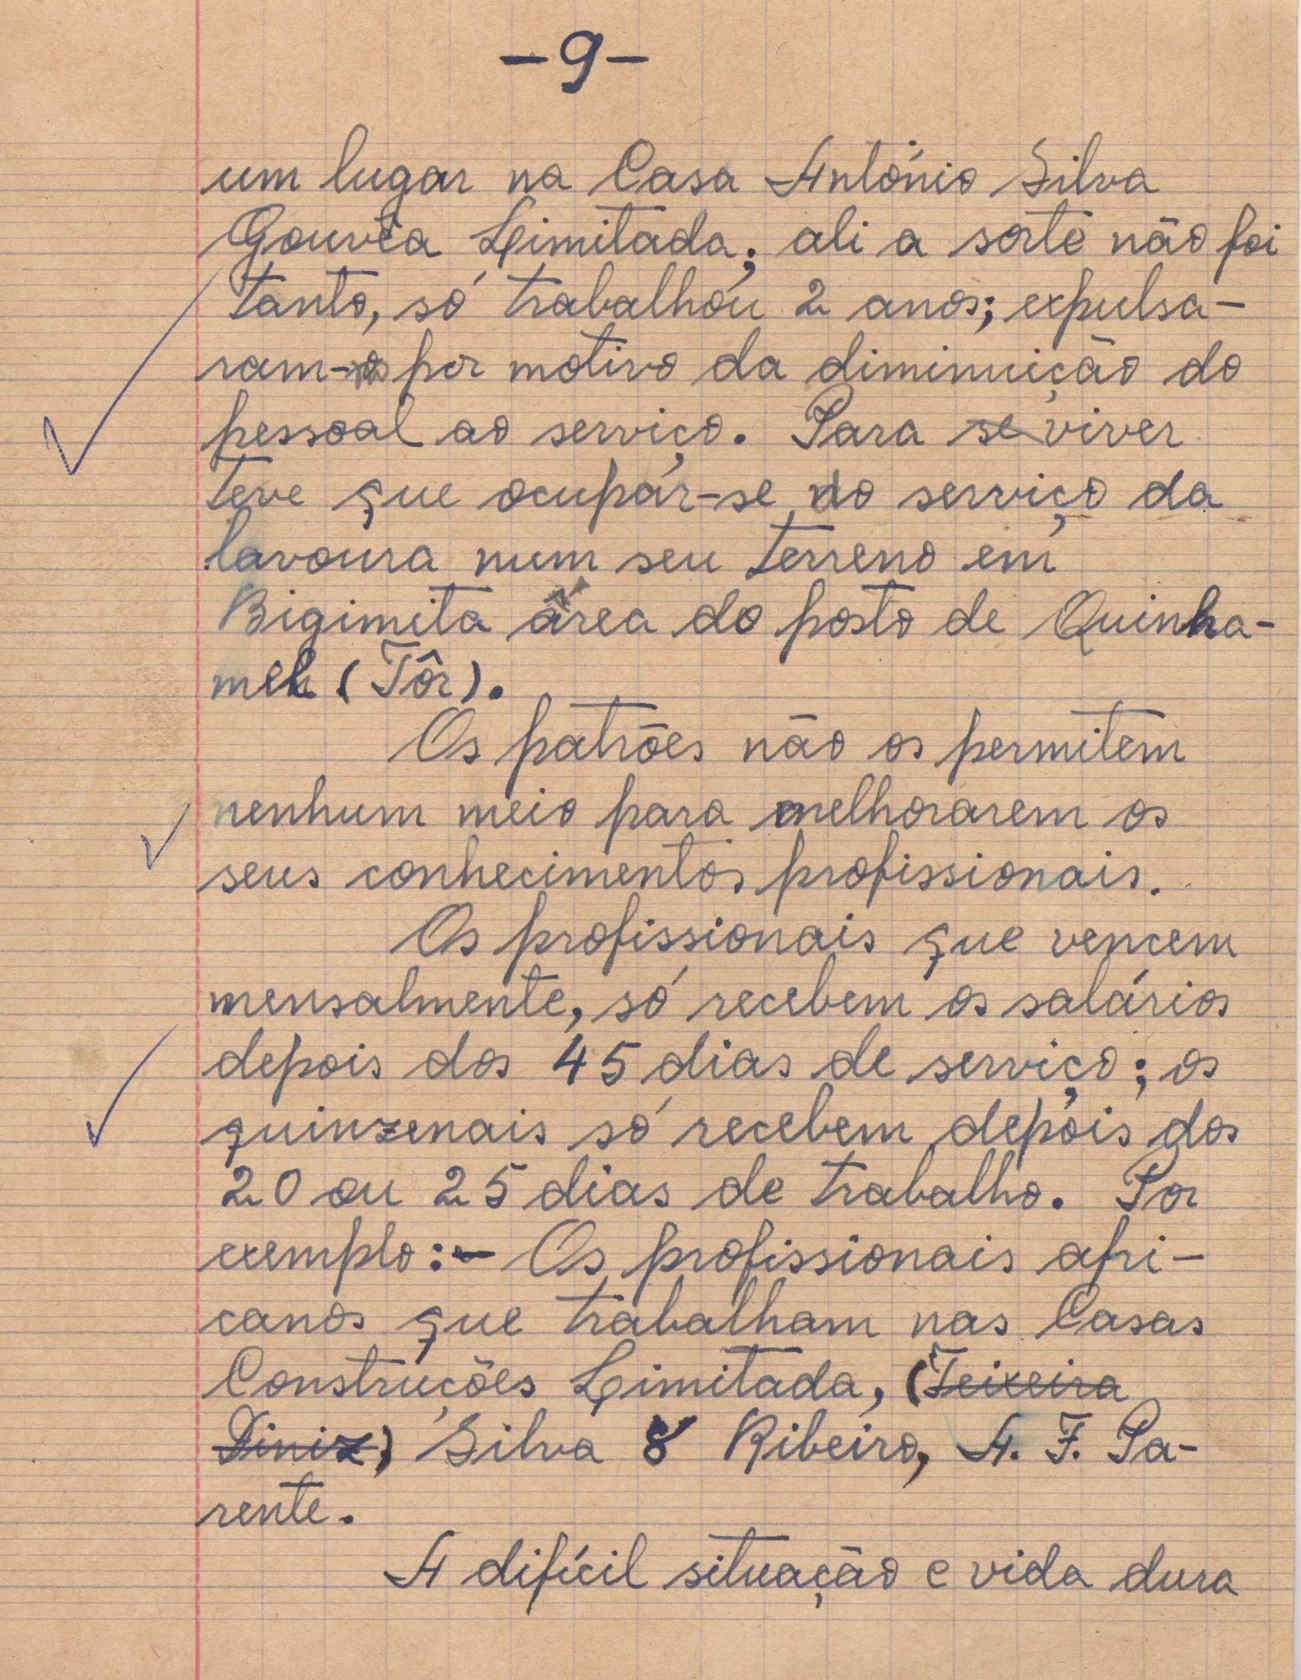 -9-
um lugar na Casa António Silva
Gouvêa Limitada; ali a sorte não foi
tanto, só trabalhou 2 anos; expulsa-
ram-no por motivo da diminuição do
pessoal ao serviço. Para se viver
teve que ocupár-se no serviço da
lavoura num seu terreno em
Bigimita área do posto de Quinha-
mel (Tôr).
Os patrões não os permitem
nenhum meio para melhorarem os
seus conhecimentos profissionais.
Os profissionais que vencem
mensalmente, só recebem os salários
depois dos 45 dias de serviço; os
quinzenais só recebem depois dos
20 ou 25 dias de trabalho. Por
exemplo:- Os profissionais afri-
canos que trabalham nas Casas
Construções Limitada, (Teixeira
Diniz) Silva & Ribeiro, A. F. Pa-
rente.
A difícil situação e vida dura